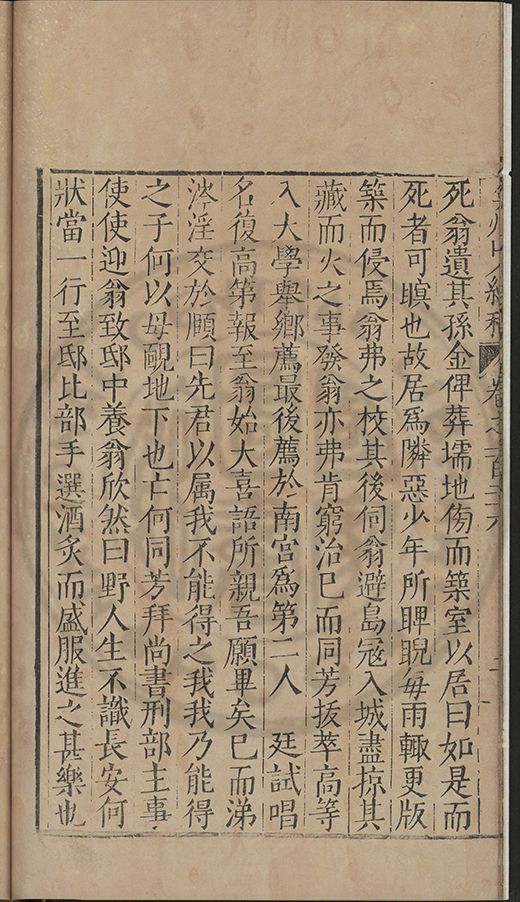 死翁遺其孫金俾葬壖地傍而築室以居曰如是而
死者可瞑也故居爲隣惡少年所睥睨每雨輙更版
築而侵焉翁弗之校其後伺翁避島寇入城盡掠其
藏而火之事發翁亦弗肯窮治已而同芳拔萃高等
入大學舉鄉薦最後薦於南宮爲第二人 廷試唱
名復高第報至翁始大喜語所親吾願畢矣已而涕
涔淫交於頤曰先君以属我不能得之我我乃能得
之子何以毋靦地下也亡何同芳拜尚書刑部主事
使使迎翁致邸中養翁欣然曰野人生不識長安何
狀當一行至邸比部手選酒炙而盛服進之甚樂也